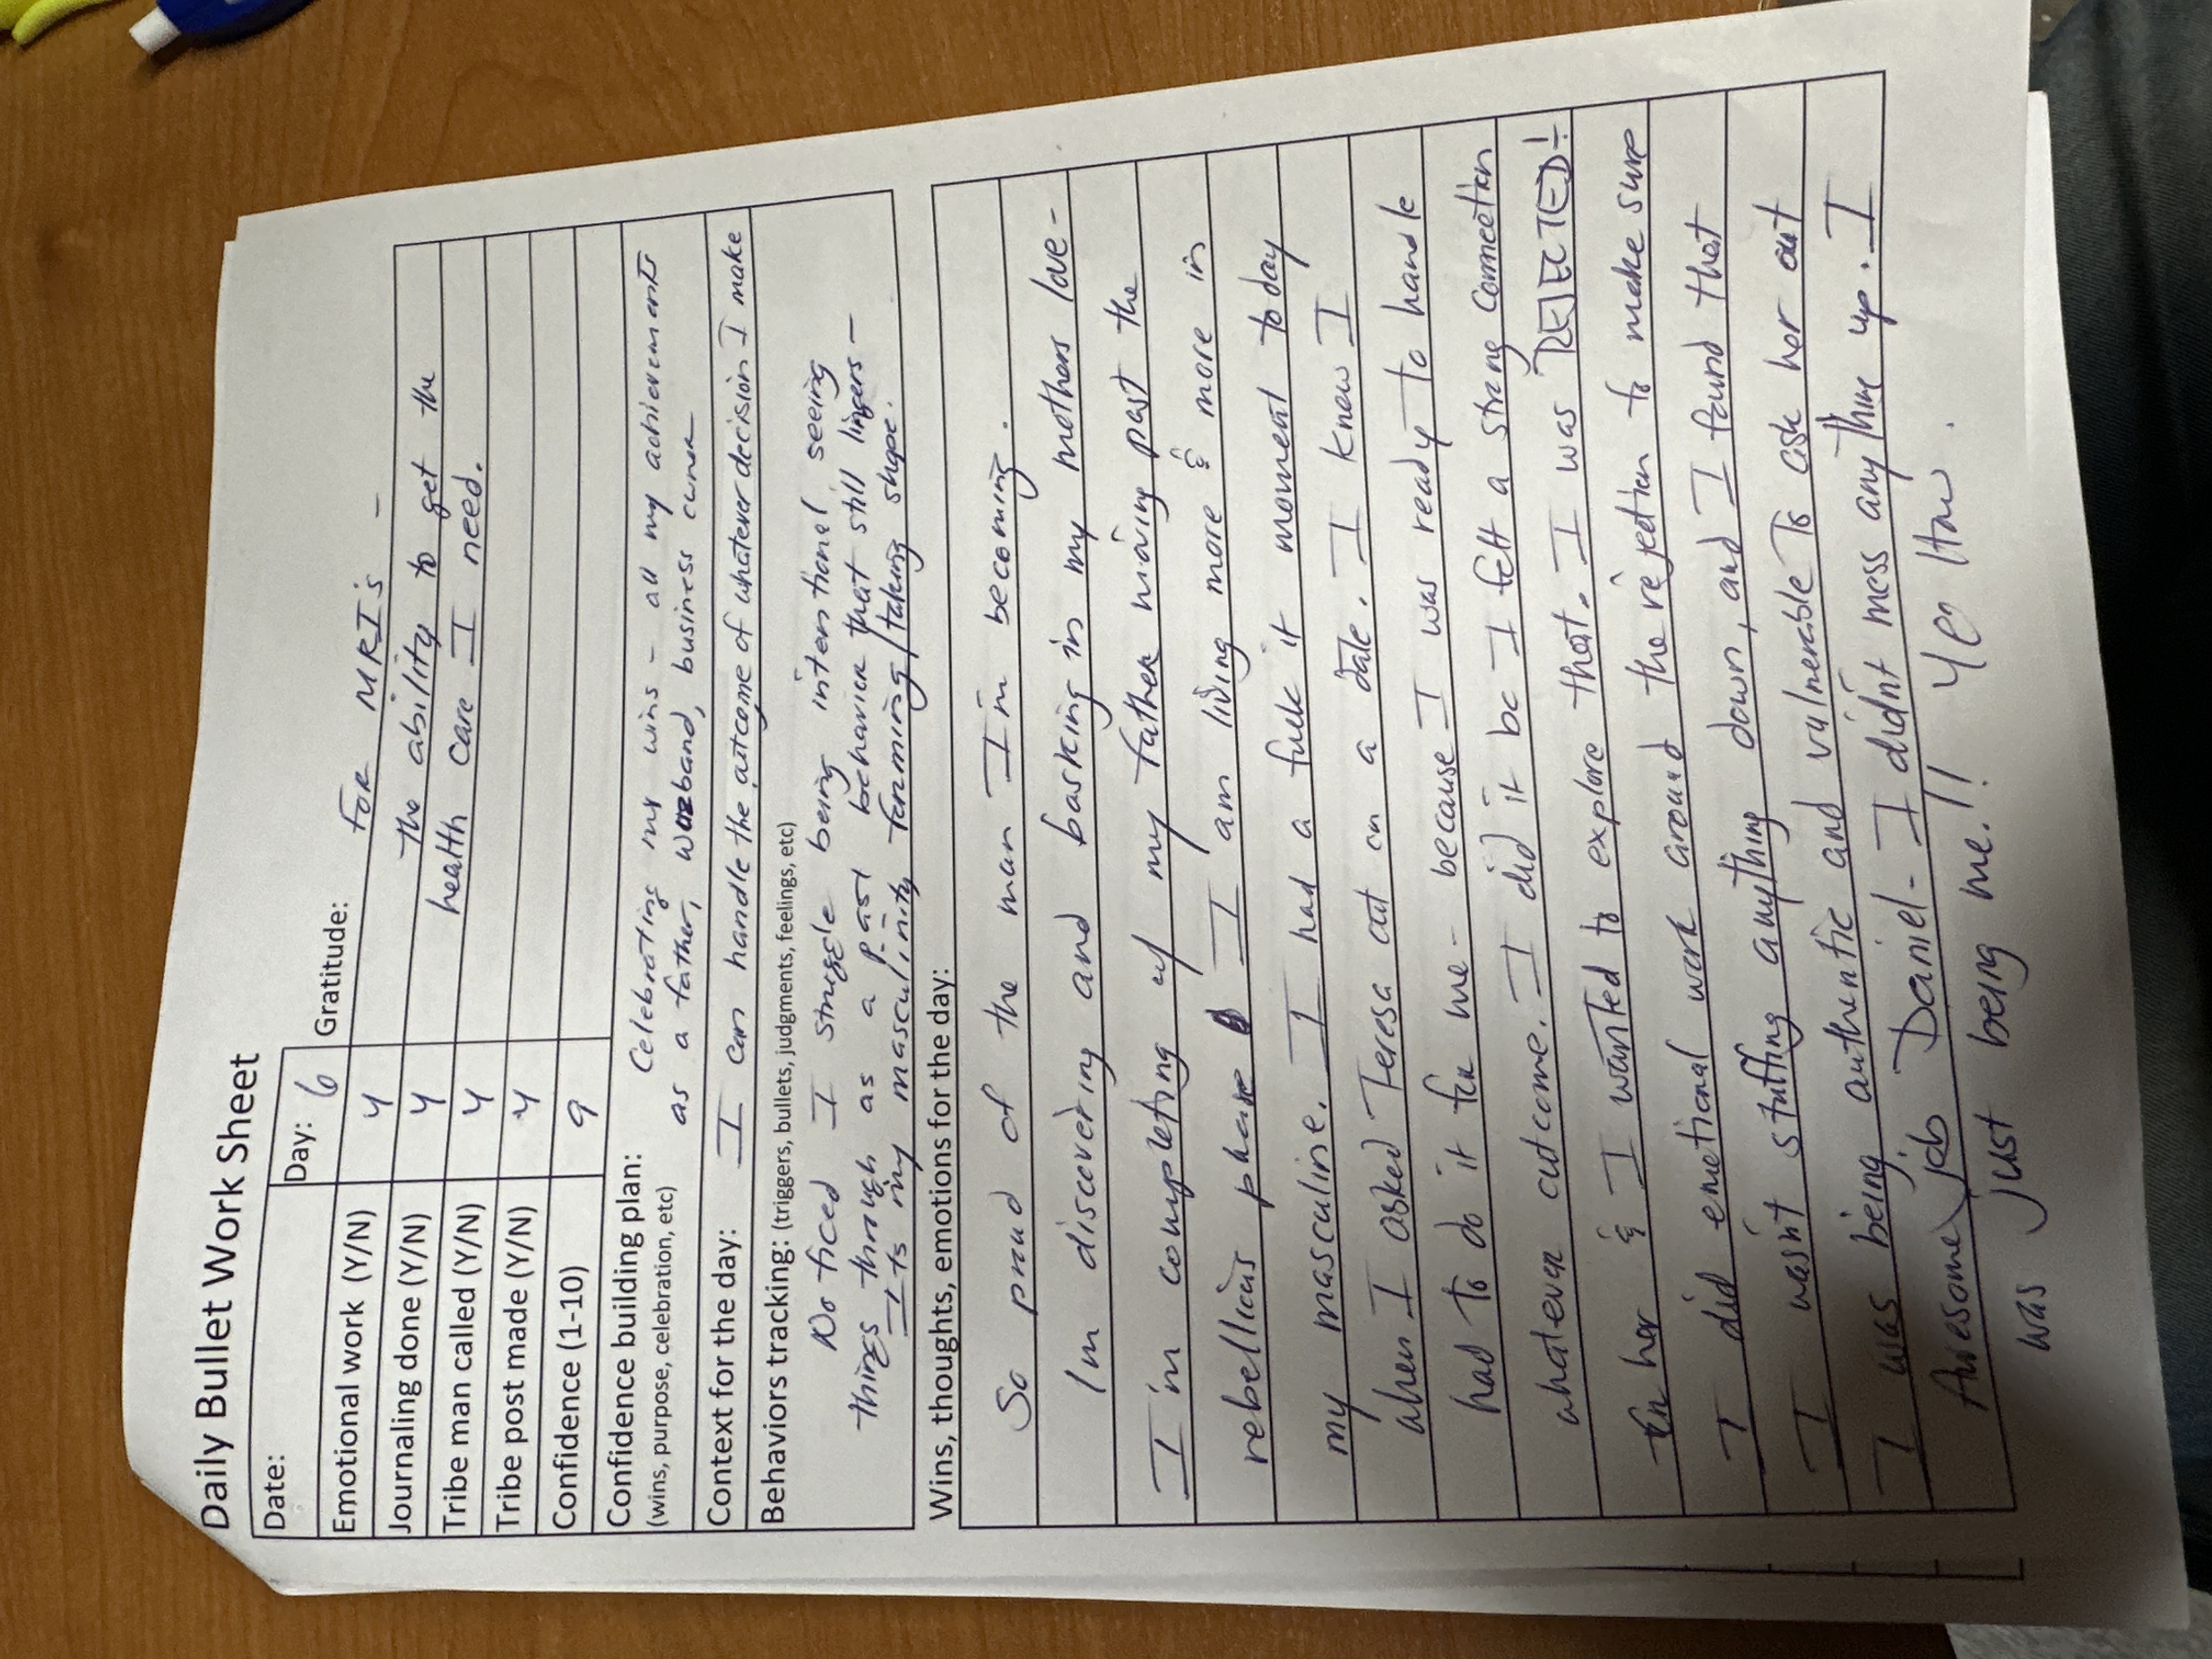 Daily Bullet Work Sheet
Date:
Day: 6
Gratitude:
Emotional work (Y/N) Y
FOR MRI's -
Journaling done (Y/N) Y
the ability to get the
Tribe man called (Y/N) Y
health care I need.
Tribe post made (Y/N) Y
Confidence (1-10) 9
Confidence building plan: Celebrating my wins - all my achievements
(wins, purpose, celebration, etc) as a father, business owner
Context for the day: I can handle the outcome of whatever decision I make
Behaviors tracking: (triggers, bullets, judgments, feelings, etc)
Noticed I struggle being intentional seeing
things through as a past behavior that still lingers -
It's my masculinity forming/taking shape.
Wins, thoughts, emotions for the day:
So proud of the man I'm becoming.
I'm discovering and basking in my mothers love -
I'm completing w/ my father moving past the
rebellious phase I am living more & more in
my masculine. I had a fuck it moment today
when I asked Teresa out on a date. I knew I
had to do it for me - because I was ready to handle
whatever outcome. I did it bc I felt a strong connection
for her & I wanted to explore that. I was REJECTED!
I did emotional work around the rejection to make sure
I wasn't stuffing anything down, and I found that
I was being authentic and vulnerable to ask her out
Awesome job Daniel - I didnt mess anything up. I
was just being me!!